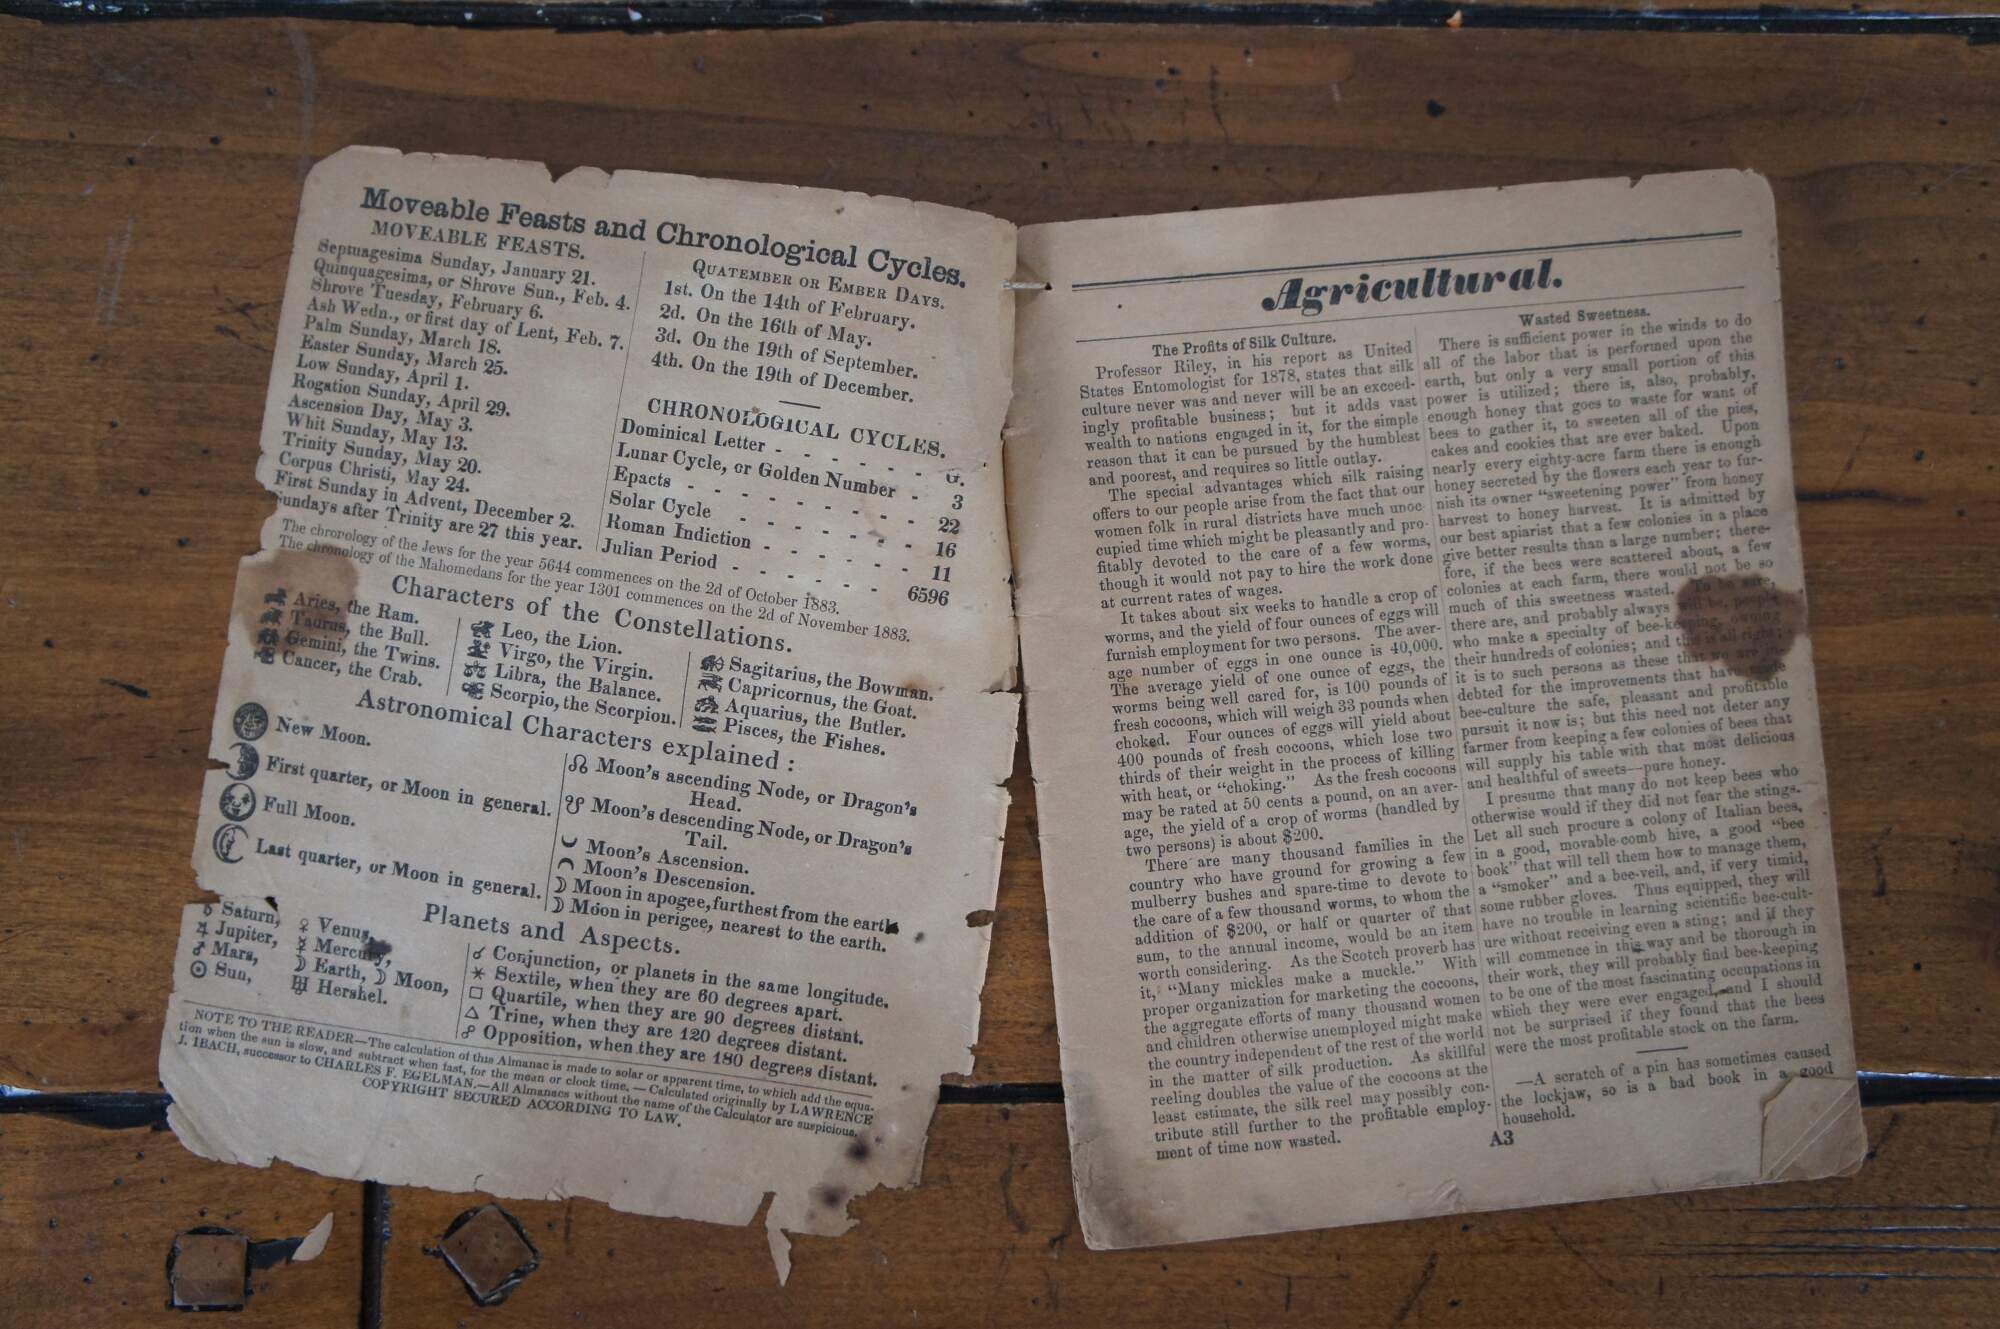 Moveable Feasts and Chronological Cycles.
MOVEABLE FEASTS.
Septuagesima Sunday, January 21.
Quinquagesima, or Shrove Sun., Feb. 4.
Shrove Tuesday, February 6.
Ash Wedn., or first day of Lent, Feb. 7.
Palm Sunday, March 18.
Easter Sunday, March 25.
Low Sunday, April 1.
Rogation Sunday, April 29.
Ascension Day, May 3.
Whit Sunday, May 13.
Trinity Sunday, May 20.
Corpus Christi, May 24.
First Sunday in Advent, December 2.
Sundays after Trinity are 27 this year.
QUATEMBER OR EMBER DAYS.
1st. On the 14th of February.
2d. On the 16th of May.
3d. On the 19th of September.
4th. On the 19th of December.
CHRONOLOGICAL CYCLES.
Dominical Letter - - - - - - G.
Lunar Cycle, or Golden Number - 3
Epacts - - - - - - - - 22
Solar Cycle - - - - - - 16
Roman Indiction - - - - - 11
Julian Period - - - - - 6596
The chronology of the Jews for the year 5644 commences on the 2d of October 1883.
The chronology of the Mahomedans for the year 1301 commences on the 2d of November 1883.
Characters of the Constellations.
Aries, the Ram.
Taurus, the Bull.
Gemini, the Twins.
Cancer, the Crab.
Leo, the Lion.
Virgo, the Virgin.
Libra, the Balance.
Scorpio, the Scorpion.
Sagitarius, the Bowman.
Capricornus, the Goat.
Aquarius, the Butler.
Pisces, the Fishes.
Astronomical Characters explained :
New Moon.
First quarter, or Moon in general.
Full Moon.
Last quarter, or Moon in general.
☊ Moon's ascending Node, or Dragon's
Head.
☋ Moon's descending Node, or Dragon's
Tail.
Moon's Ascension.
Moon's Descension.
☽ Moon in apogee, furthest from the earth
☽ Moon in perigee, nearest to the earth.
Planets and Aspects.
♄ Saturn,
♃ Jupiter,
♂ Mars,
☉ Sun,
♀ Venus,
☿ Mercury,
☽ Earth, ☽ Moon,
♅ Hershel.
☌ Conjunction, or planets in the same longitude.
⚹ Sextile, when they are 60 degrees apart.
□ Quartile, when they are 90 degrees distant.
△ Trine, when they are 120 degrees distant.
☍ Opposition, when they are 180 degrees distant.
NOTE TO THE READER—The calculation of this Almanac is made to solar or apparent time, to which add the equa-
tion when the sun is slow, and subtract when fast, for the mean or clock time. — Calculated originally by LAWRENCE
J. IBACH, successor to CHARLES F. EGELMAN.—All Almanacs without the name of the Calculator are suspicious.
COPYRIGHT SECURED ACCORDING TO LAW.
Agricultural.
The Profits of Silk Culture.
Professor Riley, in his report as United
States Entomologist for 1878, states that silk
culture never was and never will be an exceed-
ingly profitable business; but it adds vast
wealth to nations engaged in it, for the simple
reason that it can be pursued by the humblest
and poorest, and requires so little outlay.
The special advantages which silk raising
offers to our people arise from the fact that our
women folk in rural districts have much unoc-
cupied time which might be pleasantly and pro-
fitably devoted to the care of a few worms,
though it would not pay to hire the work done
at current rates of wages.
It takes about six weeks to handle a crop of
worms, and the yield of four ounces of eggs will
furnish employment for two persons. The aver-
age number of eggs in one ounce is 40,000.
The average yield of one ounce of eggs, the
worms being well cared for, is 100 pounds of
fresh cocoons, which will weigh 33 pounds when
choked. Four ounces of eggs will yield about
400 pounds of fresh cocoons, which lose two
thirds of their weight in the process of killing
with heat, or "choking." As the fresh cocoons
may be rated at 50 cents a pound, on an aver-
age, the yield of a crop of worms (handled by
two persons) is about $200.
There are many thousand families in the
country who have ground for growing a few
mulberry bushes and spare-time to devote to
the care of a few thousand worms, to whom the
addition of $200, or half or quarter of that
sum, to the annual income, would be an item
worth considering. As the Scotch proverb has
it, "Many mickles make a muckle." With
proper organization for marketing the cocoons,
the aggregate efforts of many thousand women
and children otherwise unemployed might make
the country independent of the rest of the world
in the matter of silk production. As skillful
reeling doubles the value of the cocoons at the
least estimate, the silk reel may possibly con-
tribute still further to the profitable employ-
ment of time now wasted.
Wasted Sweetness.
There is sufficient power in the winds to do
all of the labor that is performed upon the
earth, but only a very small portion of this
power is utilized; there is, also, probably,
enough honey that goes to waste for want of
bees to gather it, to sweeten all of the pies,
cakes and cookies that are ever baked. Upon
nearly every eighty-acre farm there is enough
honey secreted by the flowers each year to fur-
nish its owner "sweetening power" from honey
harvest to honey harvest. It is admitted by
our best apiarist that a few colonies in a place
give better results than a large number; there-
fore, if the bees were scattered about, a few
colonies at each farm, there would not be so
much of this sweetness wasted. To be sure,
there are, and probably always will be, people
who make a specialty of bee-keeping, owning
their hundreds of colonies; and this is all right;
it is to such persons as these that we are in-
debted for the improvements that have made
bee-culture the safe, pleasant and profitable
pursuit it now is; but this need not deter any
farmer from keeping a few colonies of bees that
will supply his table with that most delicious
and healthful of sweets—pure honey.
I presume that many do not keep bees who
otherwise would if they did not fear the stings.
Let all such procure a colony of Italian bees,
in a good, movable-comb hive, a good "bee
book" that will tell them how to manage them,
a "smoker" and a bee-veil, and, if very timid,
some rubber gloves. Thus equipped, they will
have no trouble in learning scientific bee-cult-
ure without receiving even a sting; and if they
will commence in this way and be thorough in
their work, they will probably find bee-keeping
to be one of the most fascinating occupations in
which they were ever engaged, and I should
not be surprised if they found that the bees
were the most profitable stock on the farm.
—A scratch of a pin has sometimes caused
the lockjaw, so is a bad book in a good
household.
A3